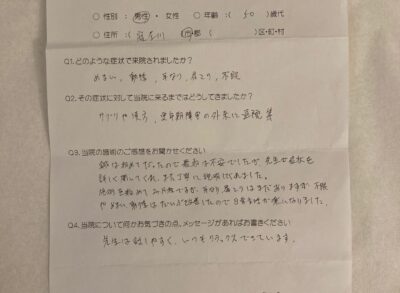 ○ 性別 : 男性 ・ 女性 ○ 年齢 : ( 50 ) 歳代
○ 住所 : ( 市・郡 ( )区・町・村
Q1. どのような症状で来院されましたか?
めまい、動悸、耳なり、肩こり、不眠
Q2. その症状に対して当院に来るまではどうしてきましたか?
サプリや漢方、更年期障害の外来に通院 等
Q3. 当院の施術のご感想をお聞かせください
鍼は初めてだったので最初は不安でしたが、先生が症状を
詳しく聞いてくれ、また丁寧に説明してくれました。
施術を始めて 2ヵ月ですが、耳鳴り、肩こりはまだありますが 不眠
や めまい、動悸はだいぶ改善したので 日常生活が楽になりました。
Q4. 当院について何かお気づきの点、メッセージがあればお書きください
先生は話しやすく、いつもリラックスできています。